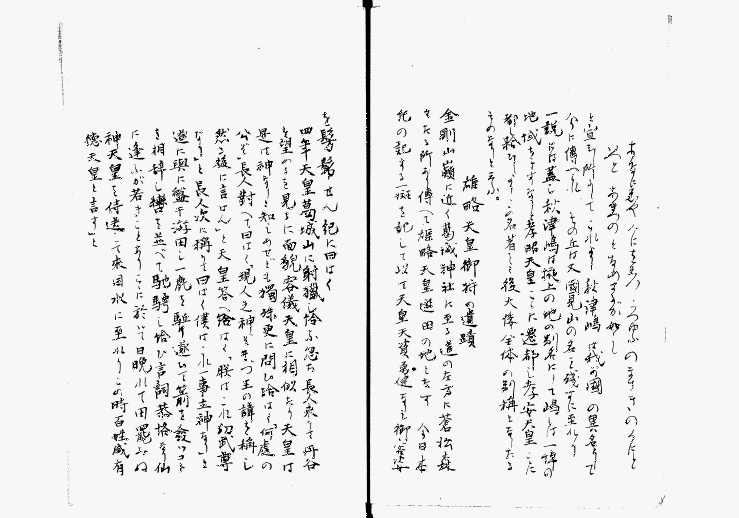 と宣り所にてこれより秋津嶋は我が國の異名とて
今に傳へ
その丘は又國見山の名を残すに至れり
一説には蓋し秋津嶋は掖上の地の別名にして嶋とは一障の
地域をなすなりと孝昭天皇ここに遷都し孝安天皇ここに
都し給ひしより名著しく後大倭全体の別稱となりたる
ものなりと云ふ。
雄略天皇御狩の遺蹟
金剛山嶺に近く葛城神社に至る道の左方に蒼松森
たる所あり傳へて雄略天皇遊田の地となす 今日本
紀の記する一斑を記して以て天皇天資勇健なる御
を髣髴せん 紀に曰はく
四年天皇葛城山に射獵し給ふ忽ち長人来りて丹谷
を望めるを見るに面貌容儀天皇に相似たり天皇は
是は神なりと知しめせども獨殊更に問ひ給はく「何處の
公ぞ」長人對へて曰はく現人之神ぞまづ王の諱を稱し
然る後に言はん」と天皇答へ給はく、朕はこれ幼武尊
なり」と長人次に稱りて曰はく僕はこれ一事主神なりと
遂に與に盤于遊田し一鹿を駈り逐ひて箭を發つコト
を相辞し轡を並べて馳騁し給ひ言詞恭恪なり仙
に逢ふが若きことありここに於いて日晩れて田罷みぬ
神天皇を侍送りて来目水に至れりこの時百姓咸有
徳天皇と言す」と